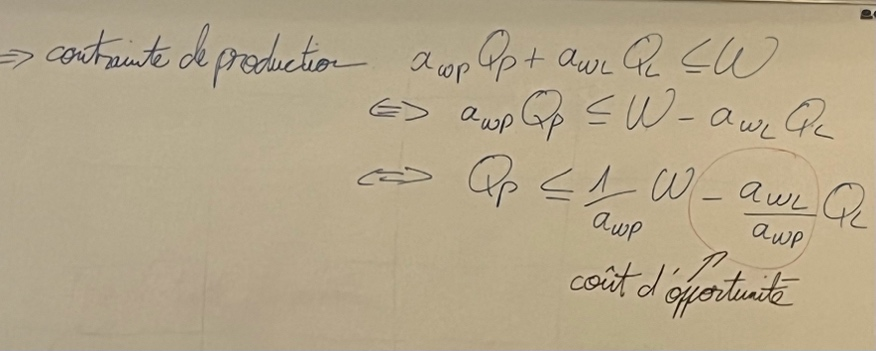 ⇒ contrainte de production a_wp Q_p + a_wL Q_L ≤ W
⇔ a_wp Q_p ≤ W - a_wL Q_L
⇔ Q_p ≤ 1/a_wp W - a_wL/a_wp Q_L
coût d'opportunité